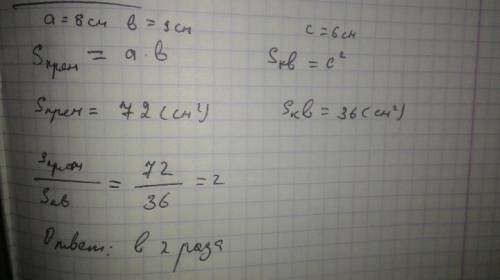 a = 8 см в = 9 см c = 6 см
Sпрям = a · в Sкв = c²
Sпрям = 72 (см²) Sкв = 36 (см²)
Sпрям / Sкв = 72 / 36 = 2
Ответ: в 2 раза